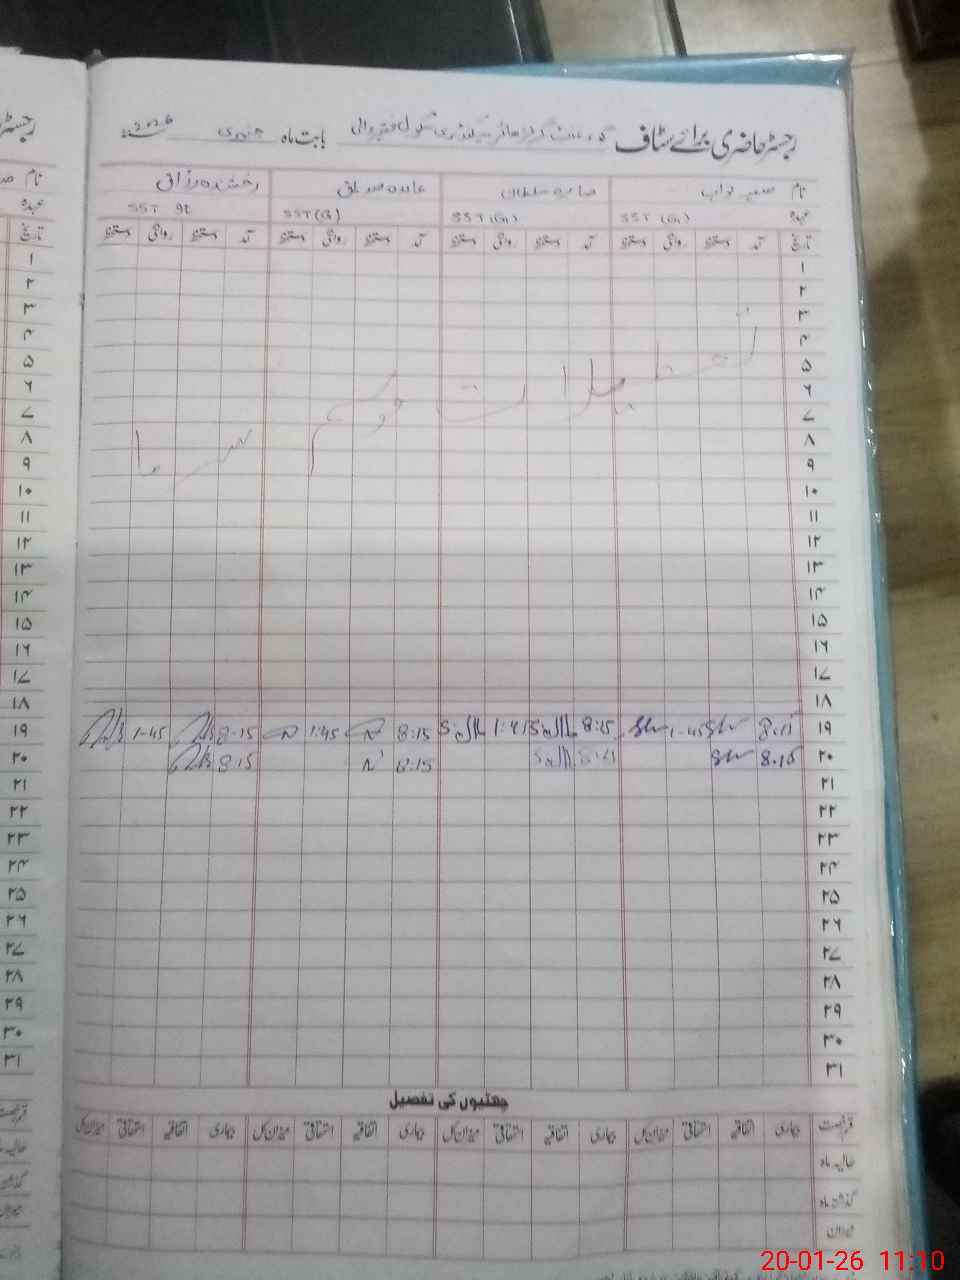 رجسٹر حاضری برائے سٹاف گورنمنٹ گرلز ہائر سیکنڈری سکول فقیر والی بابت ماہ جنوری 2026
نام صفیہ نواب صابرہ سلطان عابدہ صدیق رخشندہ رزاق
عہدہ SST (G) SST (G) SST (G) SST
تاریخ آمد دستخط روانگی دستخط آمد دستخط روانگی دستخط آمد دستخط روانگی دستخط آمد دستخط روانگی دستخط
۱
۲
۳
۴
۵
۶
۷
۸
۹
۱۰
۱۱
۱۲
۱۳
۱۴
۱۵
۱۶
۱۷
۱۸
تعطیلات موسم سرما
۱۹ 8.15 1-45 8:15 1:45 8:15 1:45 8-15 1-45
۲۰ 8.15 8:15 8:15 8:15
۲۱
۲۲
۲۳
۲۴
۲۵
۲۶
۲۷
۲۸
۲۹
۳۰
۳۱
چھٹیوں کی تفصیل
قسم رخصت بیماری اتفاقیہ استحقاقی میزان کل بیماری اتفاقیہ استحقاقی میزان کل بیماری اتفاقیہ استحقاقی میزان کل بیماری اتفاقیہ استحقاقی میزان کل
حالیہ ماہ
گذشتہ ماہ
میزان
20-01-26 11:10